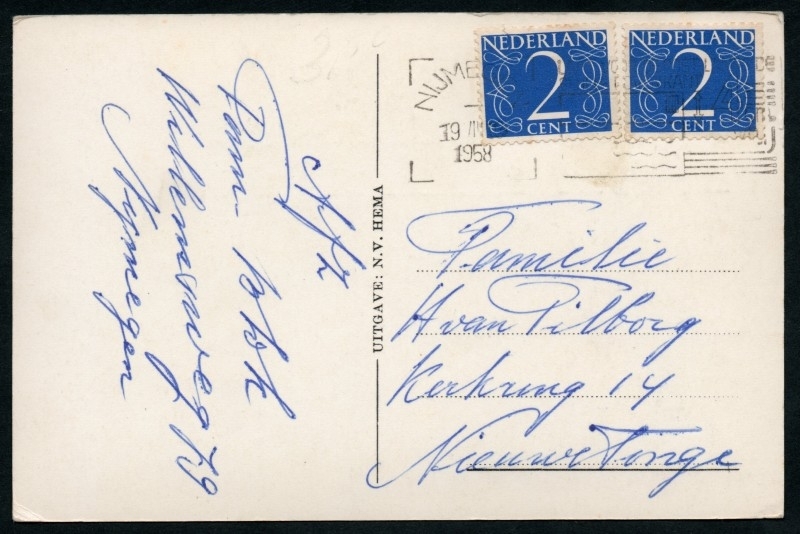 NEDERLAND
2
CENT
NEDERLAND
2
CENT
NIJME
19
1958
Afz
Fam. Blok
Willemsweg 79
Nijmegen
UITGAVE: N.V. HEMA
Familie
H van Tilborg
Kerkring 14
Nieuwe Tonge